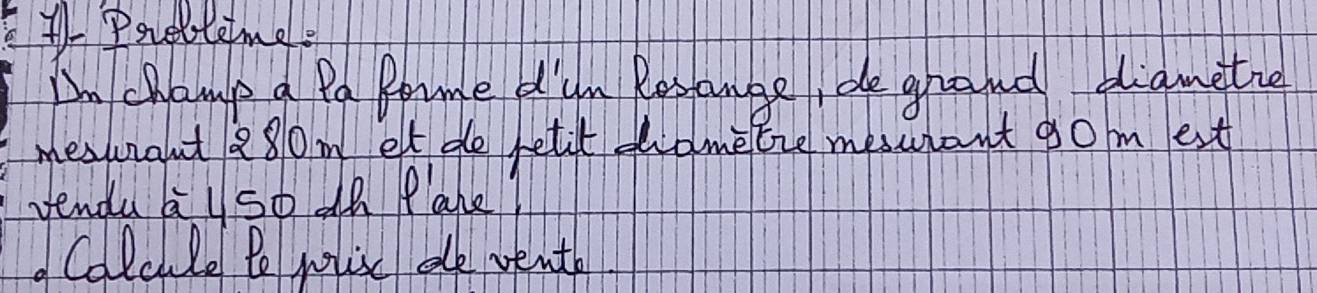 7)- Problème:
Un champ a la forme d'un losange, de grand diamètre
mesurant 280m et de petit diamètre mesurant 90m est
vendu à 450 dh l'are
. Calcule le prix de vente